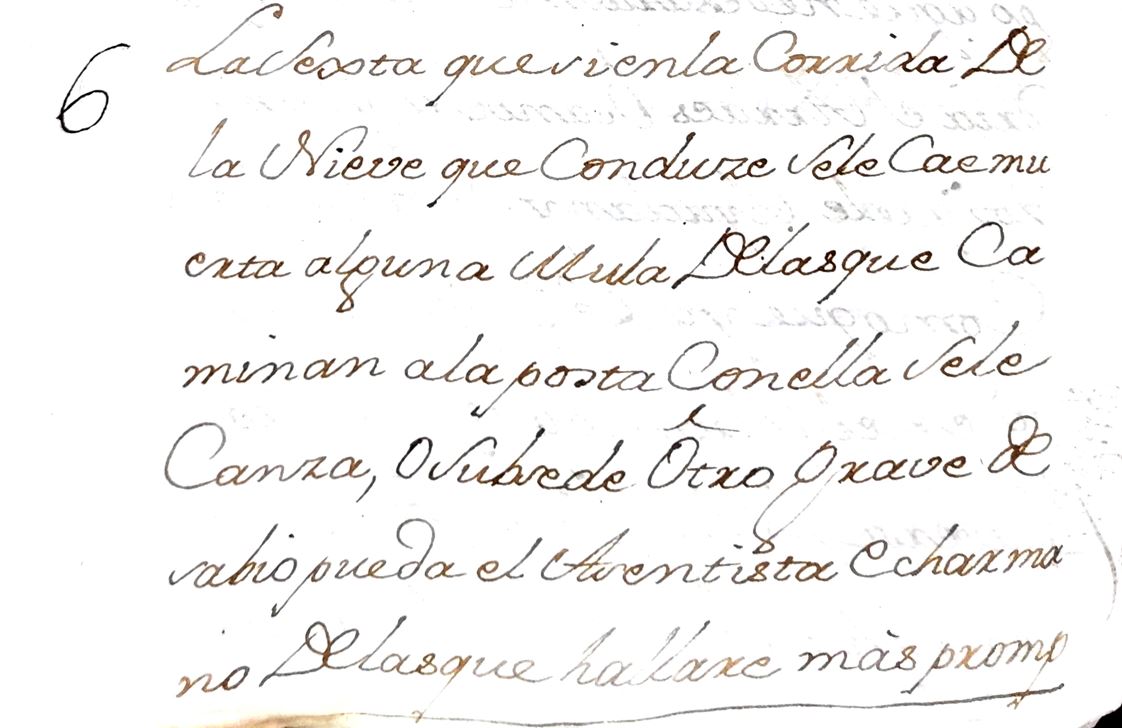 6 La Sexta que si en la Corrida De
la Nieve que Conduze se le Cae mu
erta alguna Mula De las que Ca
minan a la posta Con ella se le
Canza, O Subcede Otro grave De
sabio pueda el Aventista echar ma
no De las que hallare màs promp